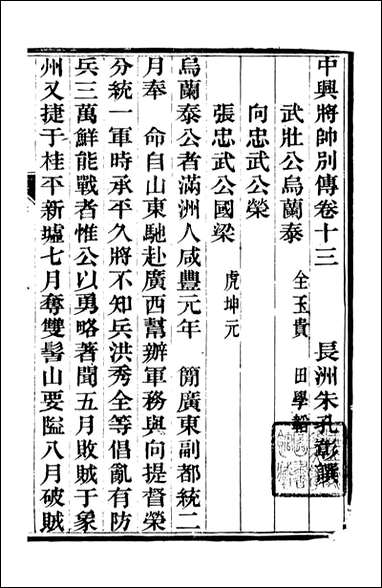 中興將帥別傳卷十三　長洲朱孔彰譔
武壯公烏蘭泰　全玉貴　田學韜
向忠武公榮
張忠武公國梁　虎坤元
烏蘭泰公者滿洲人咸豐元年　簡廣東副都統二
月奉　命自山東馳赴廣西幫辦軍務與向提督榮
分統一軍時承平久將不知兵洪秀全等倡亂有防
兵三萬鮮能戰者惟公以勇略著聞五月敗賊于象
州又捷于桂平新墟七月奪雙髻山要隘八月破賊